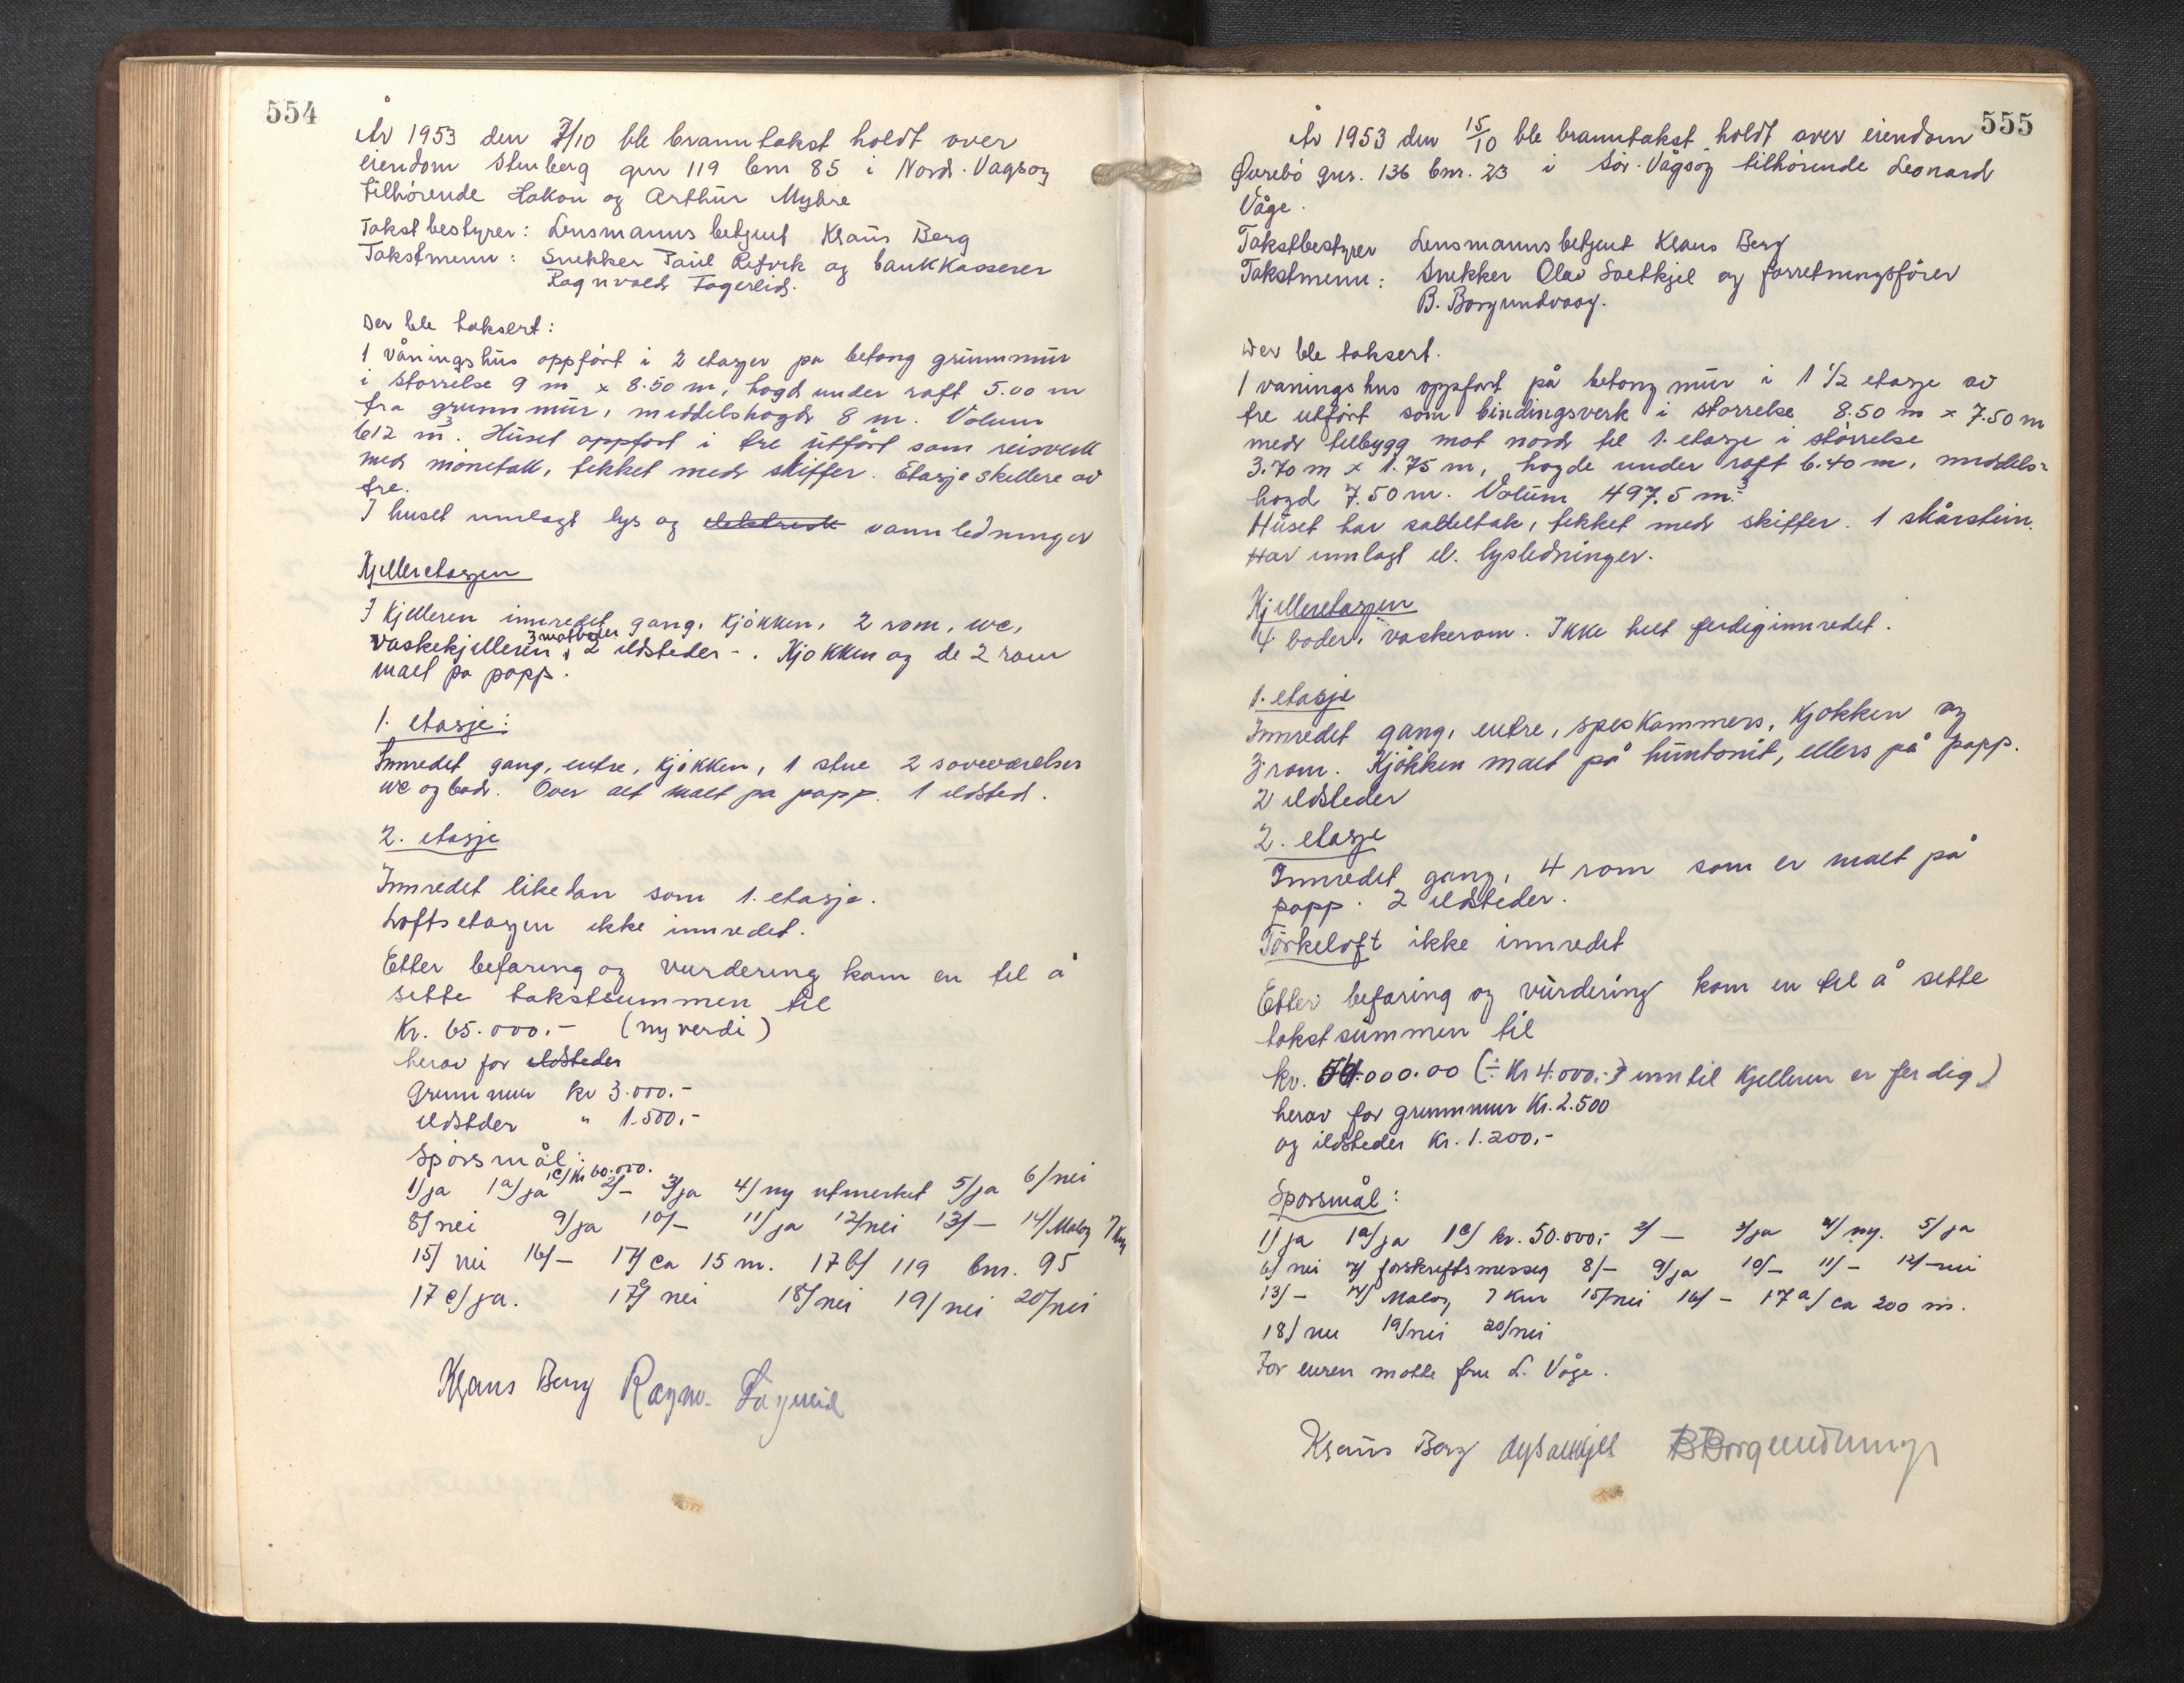 554
År 1953 den 7/10 ble branntakst holdt over
eiendom Stenberg gnr 119 bnr 85 i Nord-Vagsøy
tilhørende Hakon og Arthur Myhre
Takstbestyrer: Lensmanns betjent Klaus Berg
Takstmenn: Snekker Paul Refvik og bankkasserer
Ragnvald Fagerlid.
Der ble taksert:
1 våningshus oppført i 2 etasjer pa betong grunnmur
i størrelse 9 m x 8.50 m, høgd under raft 5.00 m
fra grunnmur, middelshøgd 8 m. Volum
612 m³. Huset oppført i tre utført som reisverk
med mønetak, tekket med skiffer. Etasjeskillere av
tre.
I huset innlagt lys og elektrisk vannledninger
Kjelleretasjen
I kjelleren innredet gang, kjøkken, 2 rom, wc,
vaskekjelleren, 3 matboder 2 ildsteder -. Kjøkken og de 2 rom
malt pa papp.
1. etasje:
Innredet gang, entre, kjøkken, 1 stue 2 soveværelser
wc og bad. Over alt malt pa papp. 1 ildsted.
2. etasje
Innredet likedan som 1. etasje.
Loftsetasjen ikke innredet.
Etter befaring og vurdering kom en til å
sette takstsummen til
Kr. 65.000.- (ny verdi)
herav for ildsteder
Grunnmur kr 3.000.-
ildsteder " 1.500.-
Spørsmål:
1/ja 1a/ja 1c/kr 60.000. 2/- 3/ja 4/ny utmerket 5/ja 6/nei
8/nei 9/ja 10/- 11/ja 12/nei 13/- 14/Maløy 7 km
15/ nei 16/- 17/ca 15 m. 17 b/ 119 bnr. 95
17 c/ja. 17 nei 18/nei 19/nei 20/nei
Klaus Berg Ragnv. Fagerlid
555
År 1953 den 15/10 ble branntakst holdt over eiendom
Øvrebø gnr. 136 bnr. 23 i Sør-Vågsøy tilhørende Leonard
Våge.
Takstbestyrer Lensmannsbetjent Klaus Berg
Takstmenn: Snekker Olav Saetkjel og forretningsfører
B. Borgundvaag.
Der ble taksert.
1 vaningshus oppført på betong mur i 1 1/2 etasje av
tre utført som bindingsverk i størrelse 8.50 m x 7.50 m
med tilbygg mot nord til 1. etasje i størrelse
3.70 m x 1.75 m, høgde under raft 6.40 m, middels-
høgd 7.50 m. Volum 497.5 m³.
Huset har saltak, tekket med skiffer. 1 skårstein.
Har innlagt el. lysledninger.
Kjelleretasjen
4 boder, vaskerom. Ikke helt ferdiginnredet.
1. etasje
Innredet gang, entre, speskammers, kjøkken og
3 rom. Kjøkken malt på huntonit, ellers på papp.
2 ildsteder
2. etasje
Innredet gang, 4 rom som er malt på
papp. 2 ildsteder.
Tørkeloft ikke innredet
Etter befaring og vurdering kom en til å sette
takstsummen til
kr. 54.000.00 (÷ Kr 4.000.- inntil kjelleren er ferdig)
herav for grunnmur Kr. 2.500
og ildsteder Kr. 1.200,-
Spørsmål:
1/ ja 1a/ja 1c/ kr. 50.000,- 2/ - 3/ja 4/ ny. 5/ ja
6/ nei 7/ forskriftsmessig 8/- 9/ja 10/- 11/- 12/-nei
13/- 14/ Maløy 7 km 15/nei 16/- 17 a/ ca 200 m.
18/ nei 19/nei 20/nei
For eieren møtte fru L. Våge.
Klaus Berg B Borgundvaag